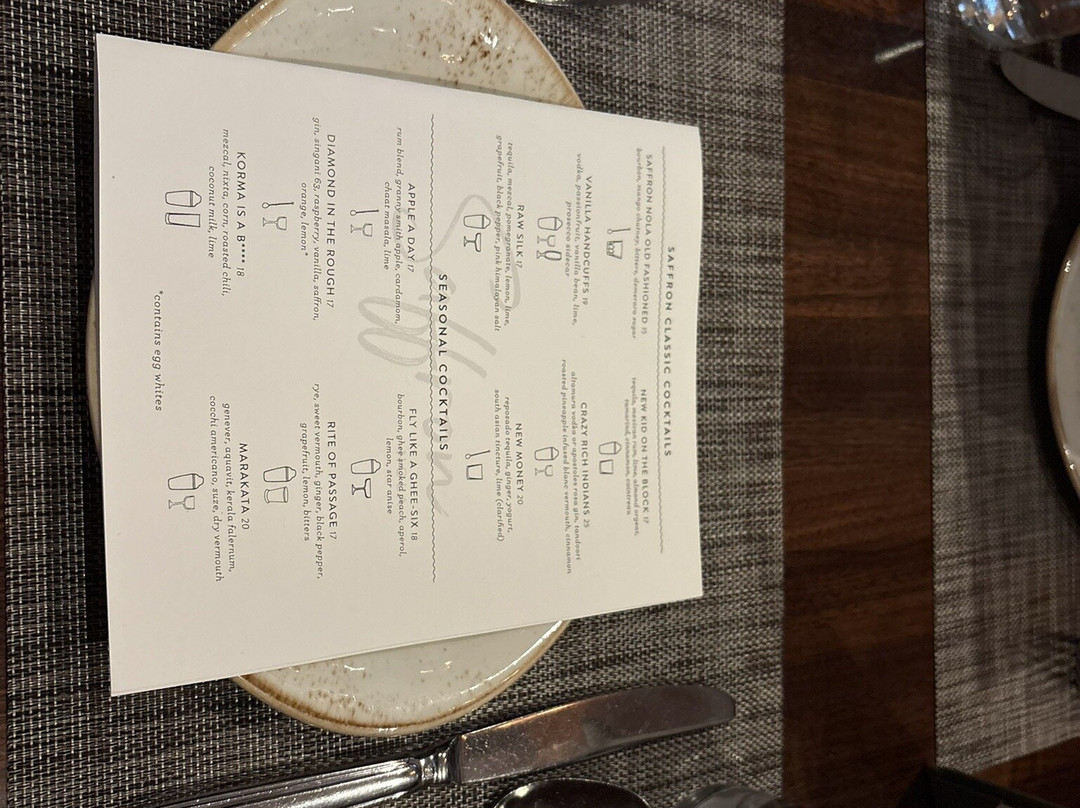 SAFFRON CLASSIC COCKTAILS
SAFFRON NOLA OLD FASHIONED 15
bourbon, mango chutney, bitters, demerara sugar
VANILLA HANDCUFFS 19
vodka, passionfruit, vanilla bean, lime,
prosecco sidecar
RAW SILK 17
tequila, mezcal, pomegranate, lemon, lime,
grapefruit, black pepper, pink himalayan salt
NEW KID ON THE BLOCK 17
tequila, mexican rum, lime, almond orgeat,
tamarind, cinnamon, cointreau
CRAZY RICH INDIANS 25
altamura vodka or apostoles rosa gin, tandoori
roasted pineapple infused blanc vermouth, cinnamon
NEW MONEY 20
reposado tequila, ginger, yogurt,
south asian tincture, lime (clarified)
Saffron
SEASONAL COCKTAILS
APPLE A DAY 17
rum blend, granny smith apple, cardamom,
chaat masala, lime
DIAMOND IN THE ROUGH 17
gin, singani 63, raspberry, vanilla, saffron,
orange, lemon*
KORMA IS A B**** 18
mezcal, nixta, corn, roasted chili,
coconut milk, lime
FLY LIKE A GHEE-SIX 18
bourbon, ghee smoked peach, aperol,
lemon, star anise
RITE OF PASSAGE 17
rye, sweet vermouth, ginger, black pepper,
grapefruit, lemon, bitters
MARAKATA 20
genever, aquavit, kerala falernum,
cocchi americano, suze, dry vermouth
*contains egg whites